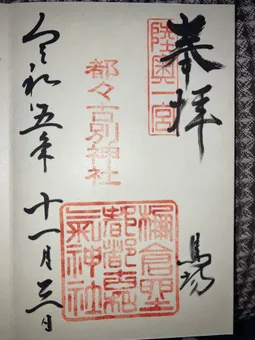 奉拝
陸奥一宮
馬場
都々古別神社
都都古和
氣神社
令和五年
十一月三日